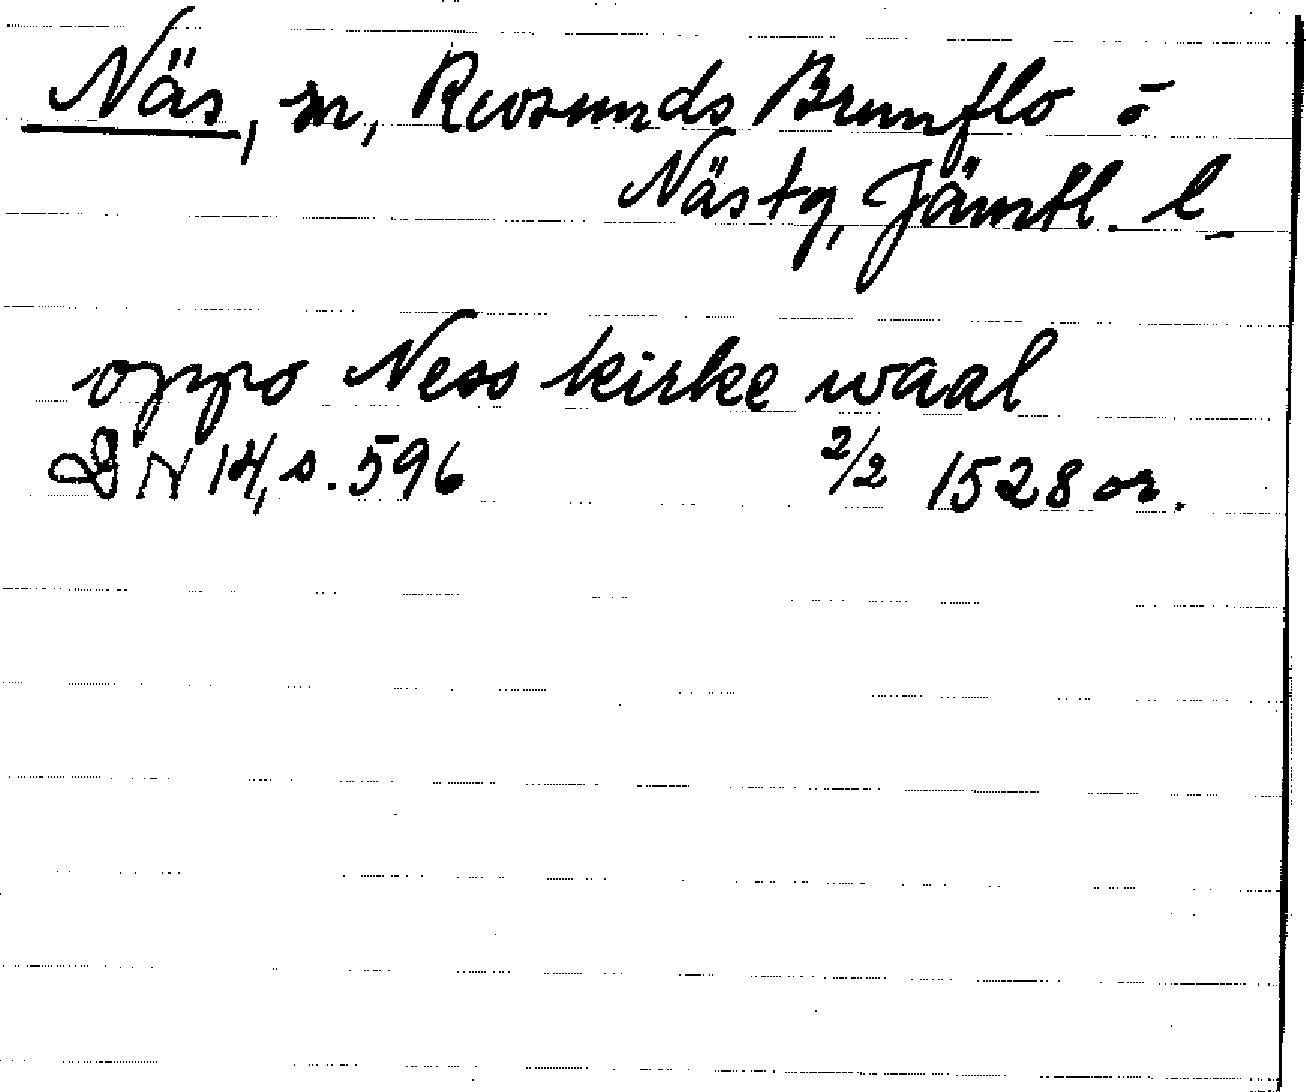 Näs, sn, Revsunds Brunflo o
Näs tg, Jämtl. l
oppo Ness kirke waal
DN 14, s. 596 2/2 1528 or.